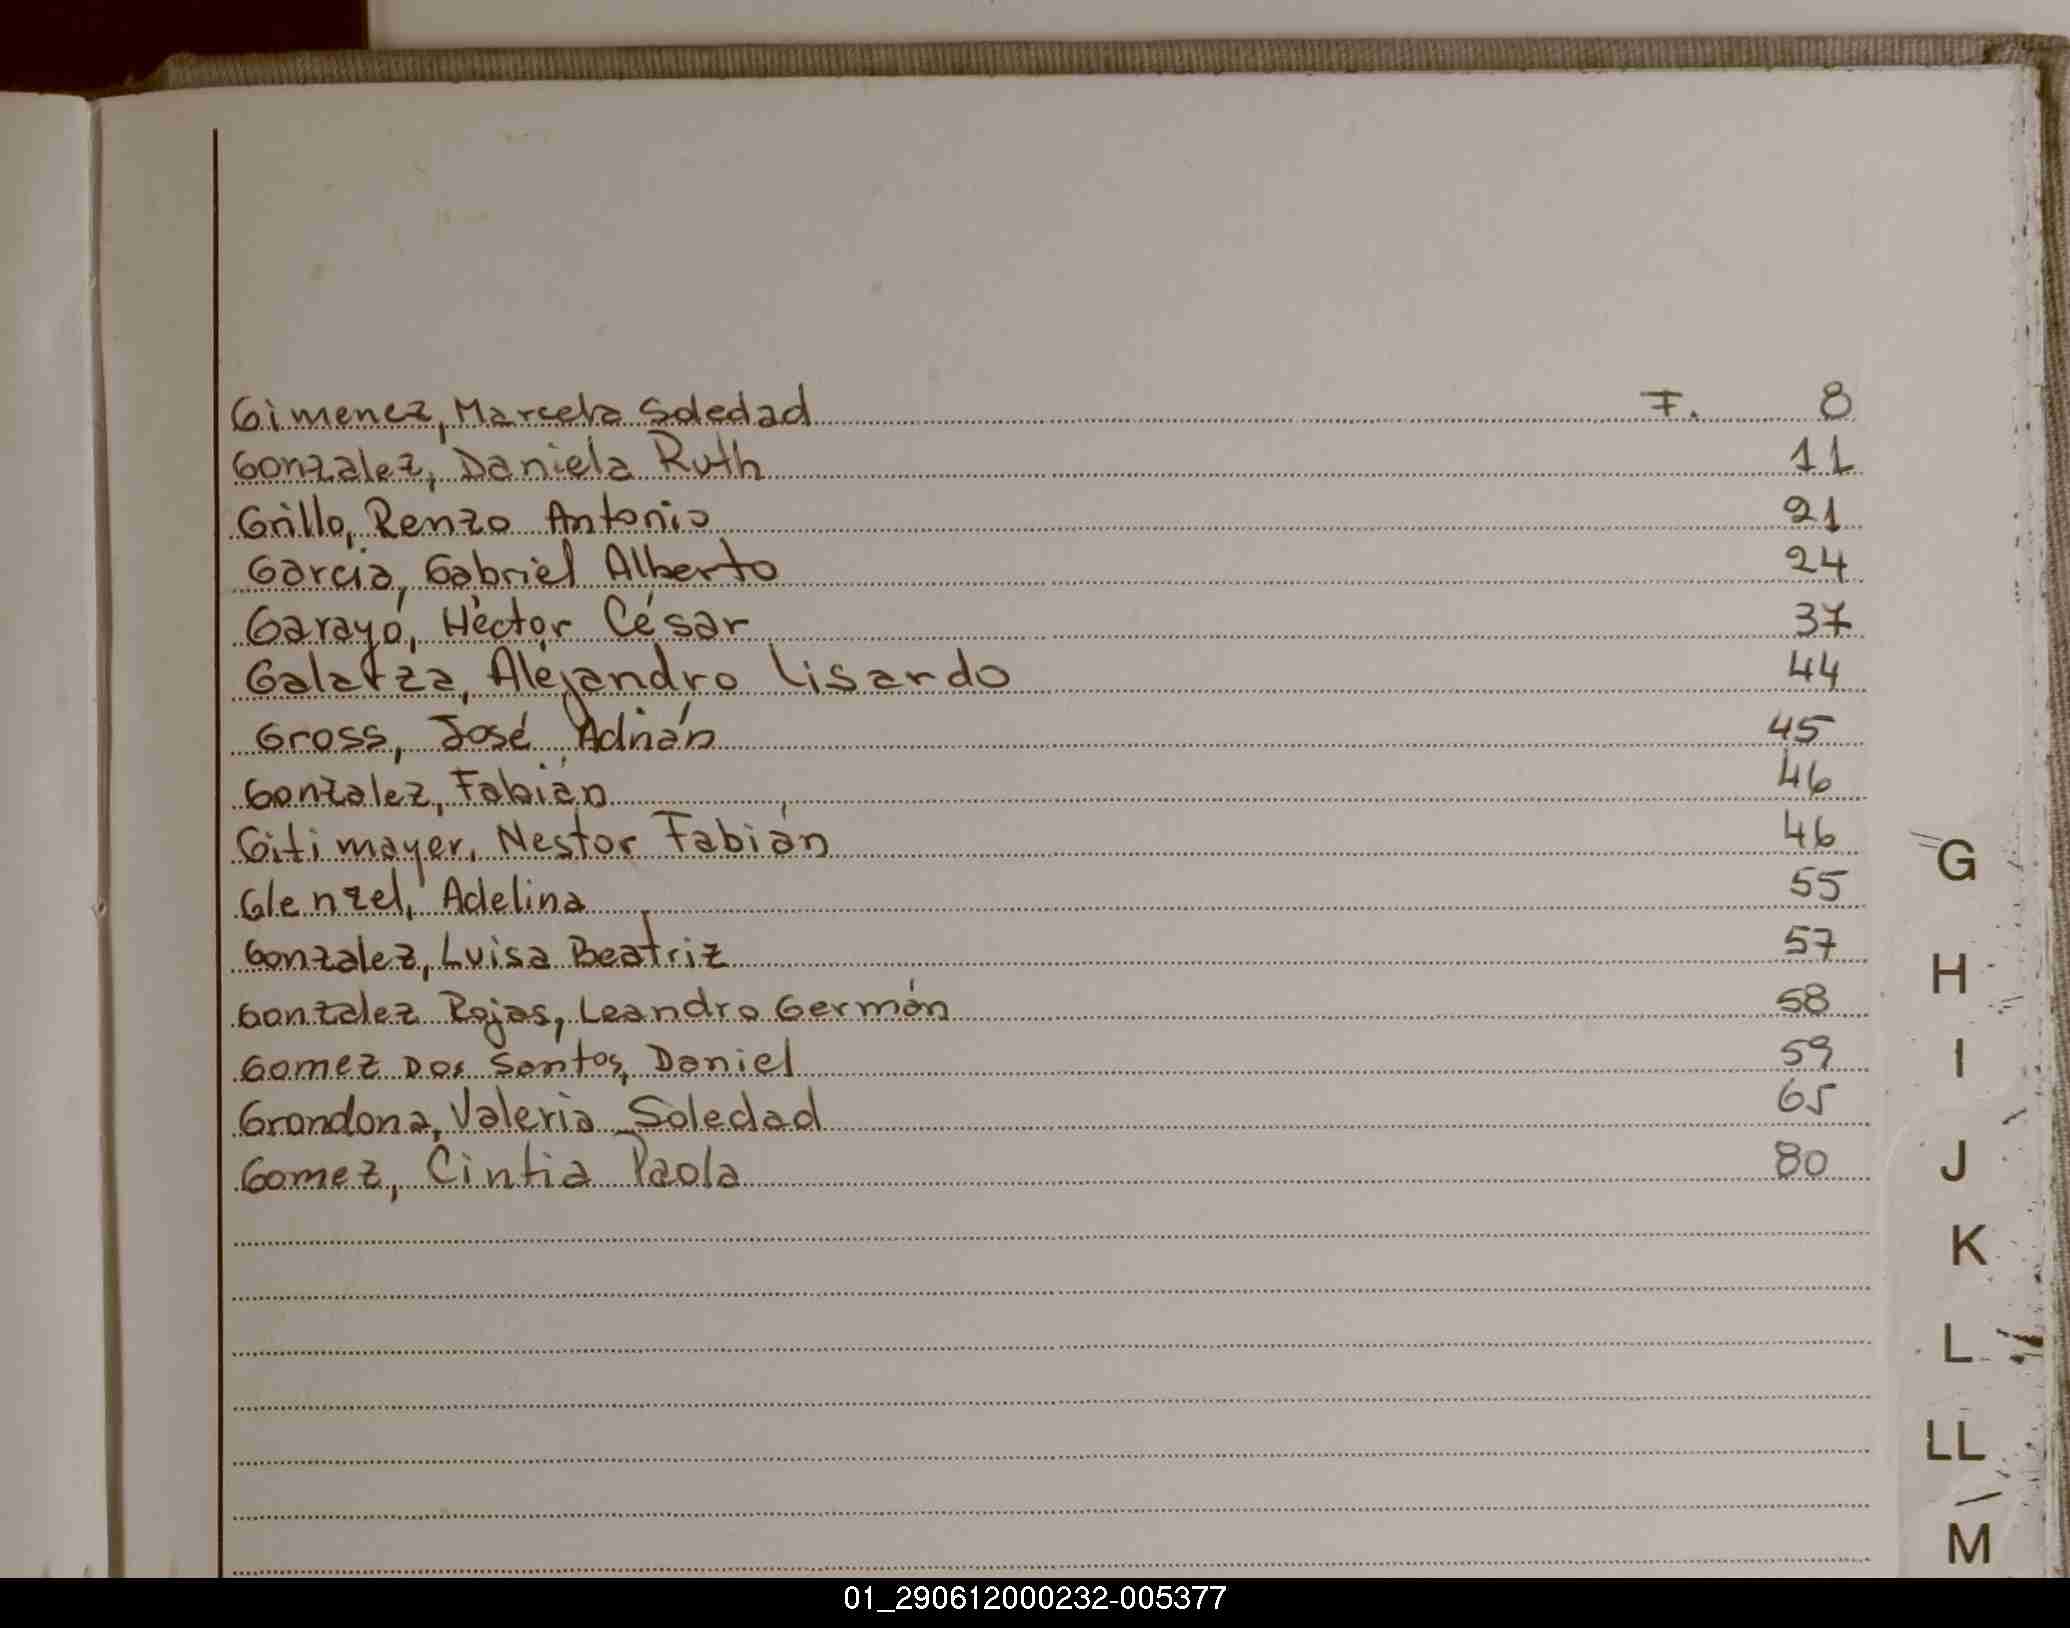 Gimenez, Marcela Soledad F. 8
Gonzalez, Daniela Ruth 11
Grillo, Renzo Antonio 21
Garcia, Gabriel Alberto 24
Garayo, Héctor César 37
Galarza, Alejandro Lisardo 44
Gross, José Adrián 45
Gonzalez, Fabián 46
Gitimayer, Nestor Fabián 46
Glenzel, Adelina 55
Gonzalez, Luisa Beatriz 57
Gonzalez Rojas, Leandro Germán 58
Gomez Dos Santos, Daniel 59
Grondona, Valeria Soledad 65
Gomez, Cintia Paola 80
G
H
I
J
K
L
LL
M
01_290612000232-005377